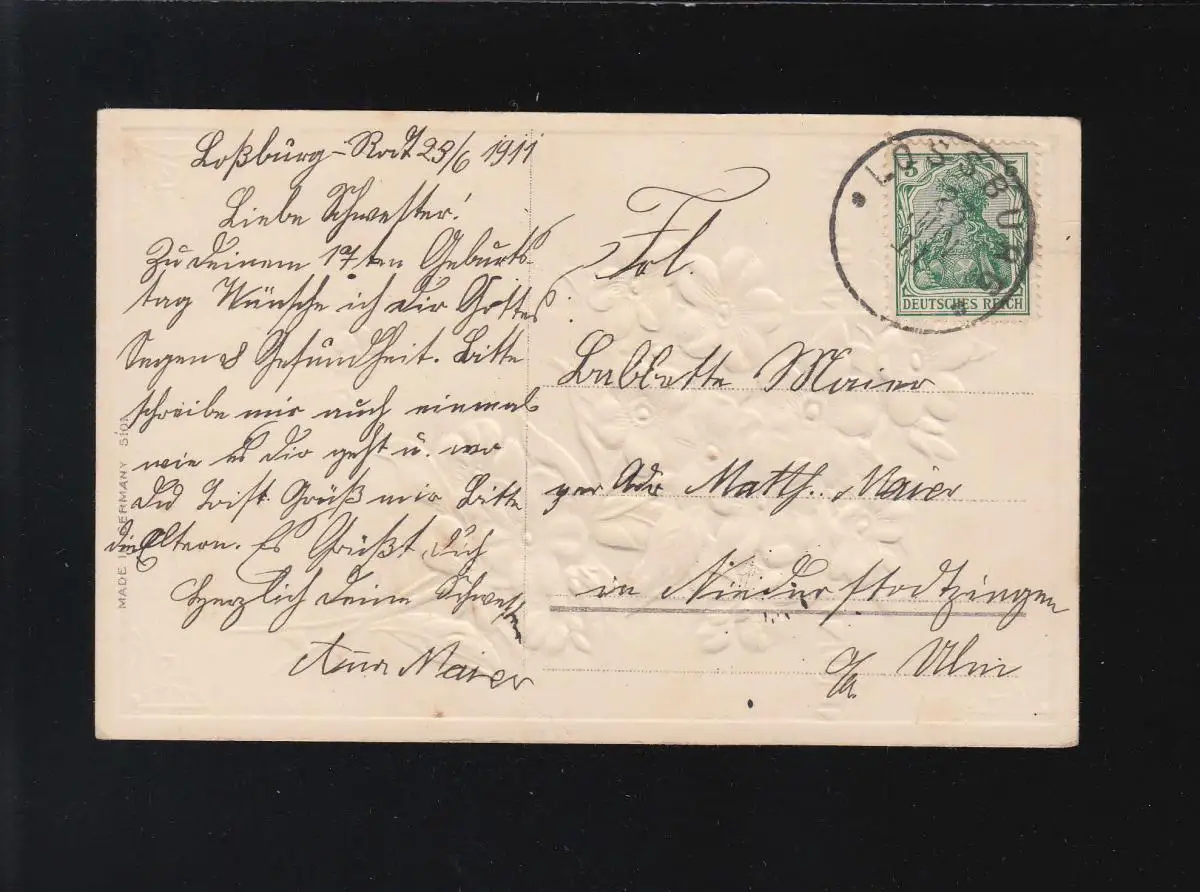 Loßburg-Rodt 23/6 1911
Liebe Schwester!
Zu deinem 17ten Geburts-
tag Wünsche ich dir Gottes
Segen & Gesundheit. Bitte
schreibe mir auch einmal
wie es dir geht u. wo
du bist. Grüß mir bitte
die Eltern. Es Grüßt dich
Herzlich deine Schwester
Anna Maier
MADE IN GERMANY 5101
LOSSBURG
5 5
DEUTSCHES REICH
Frl.
Babbette Maier
per Adr Matth. Maier
in Niederstotzingen
O/A. Ulm